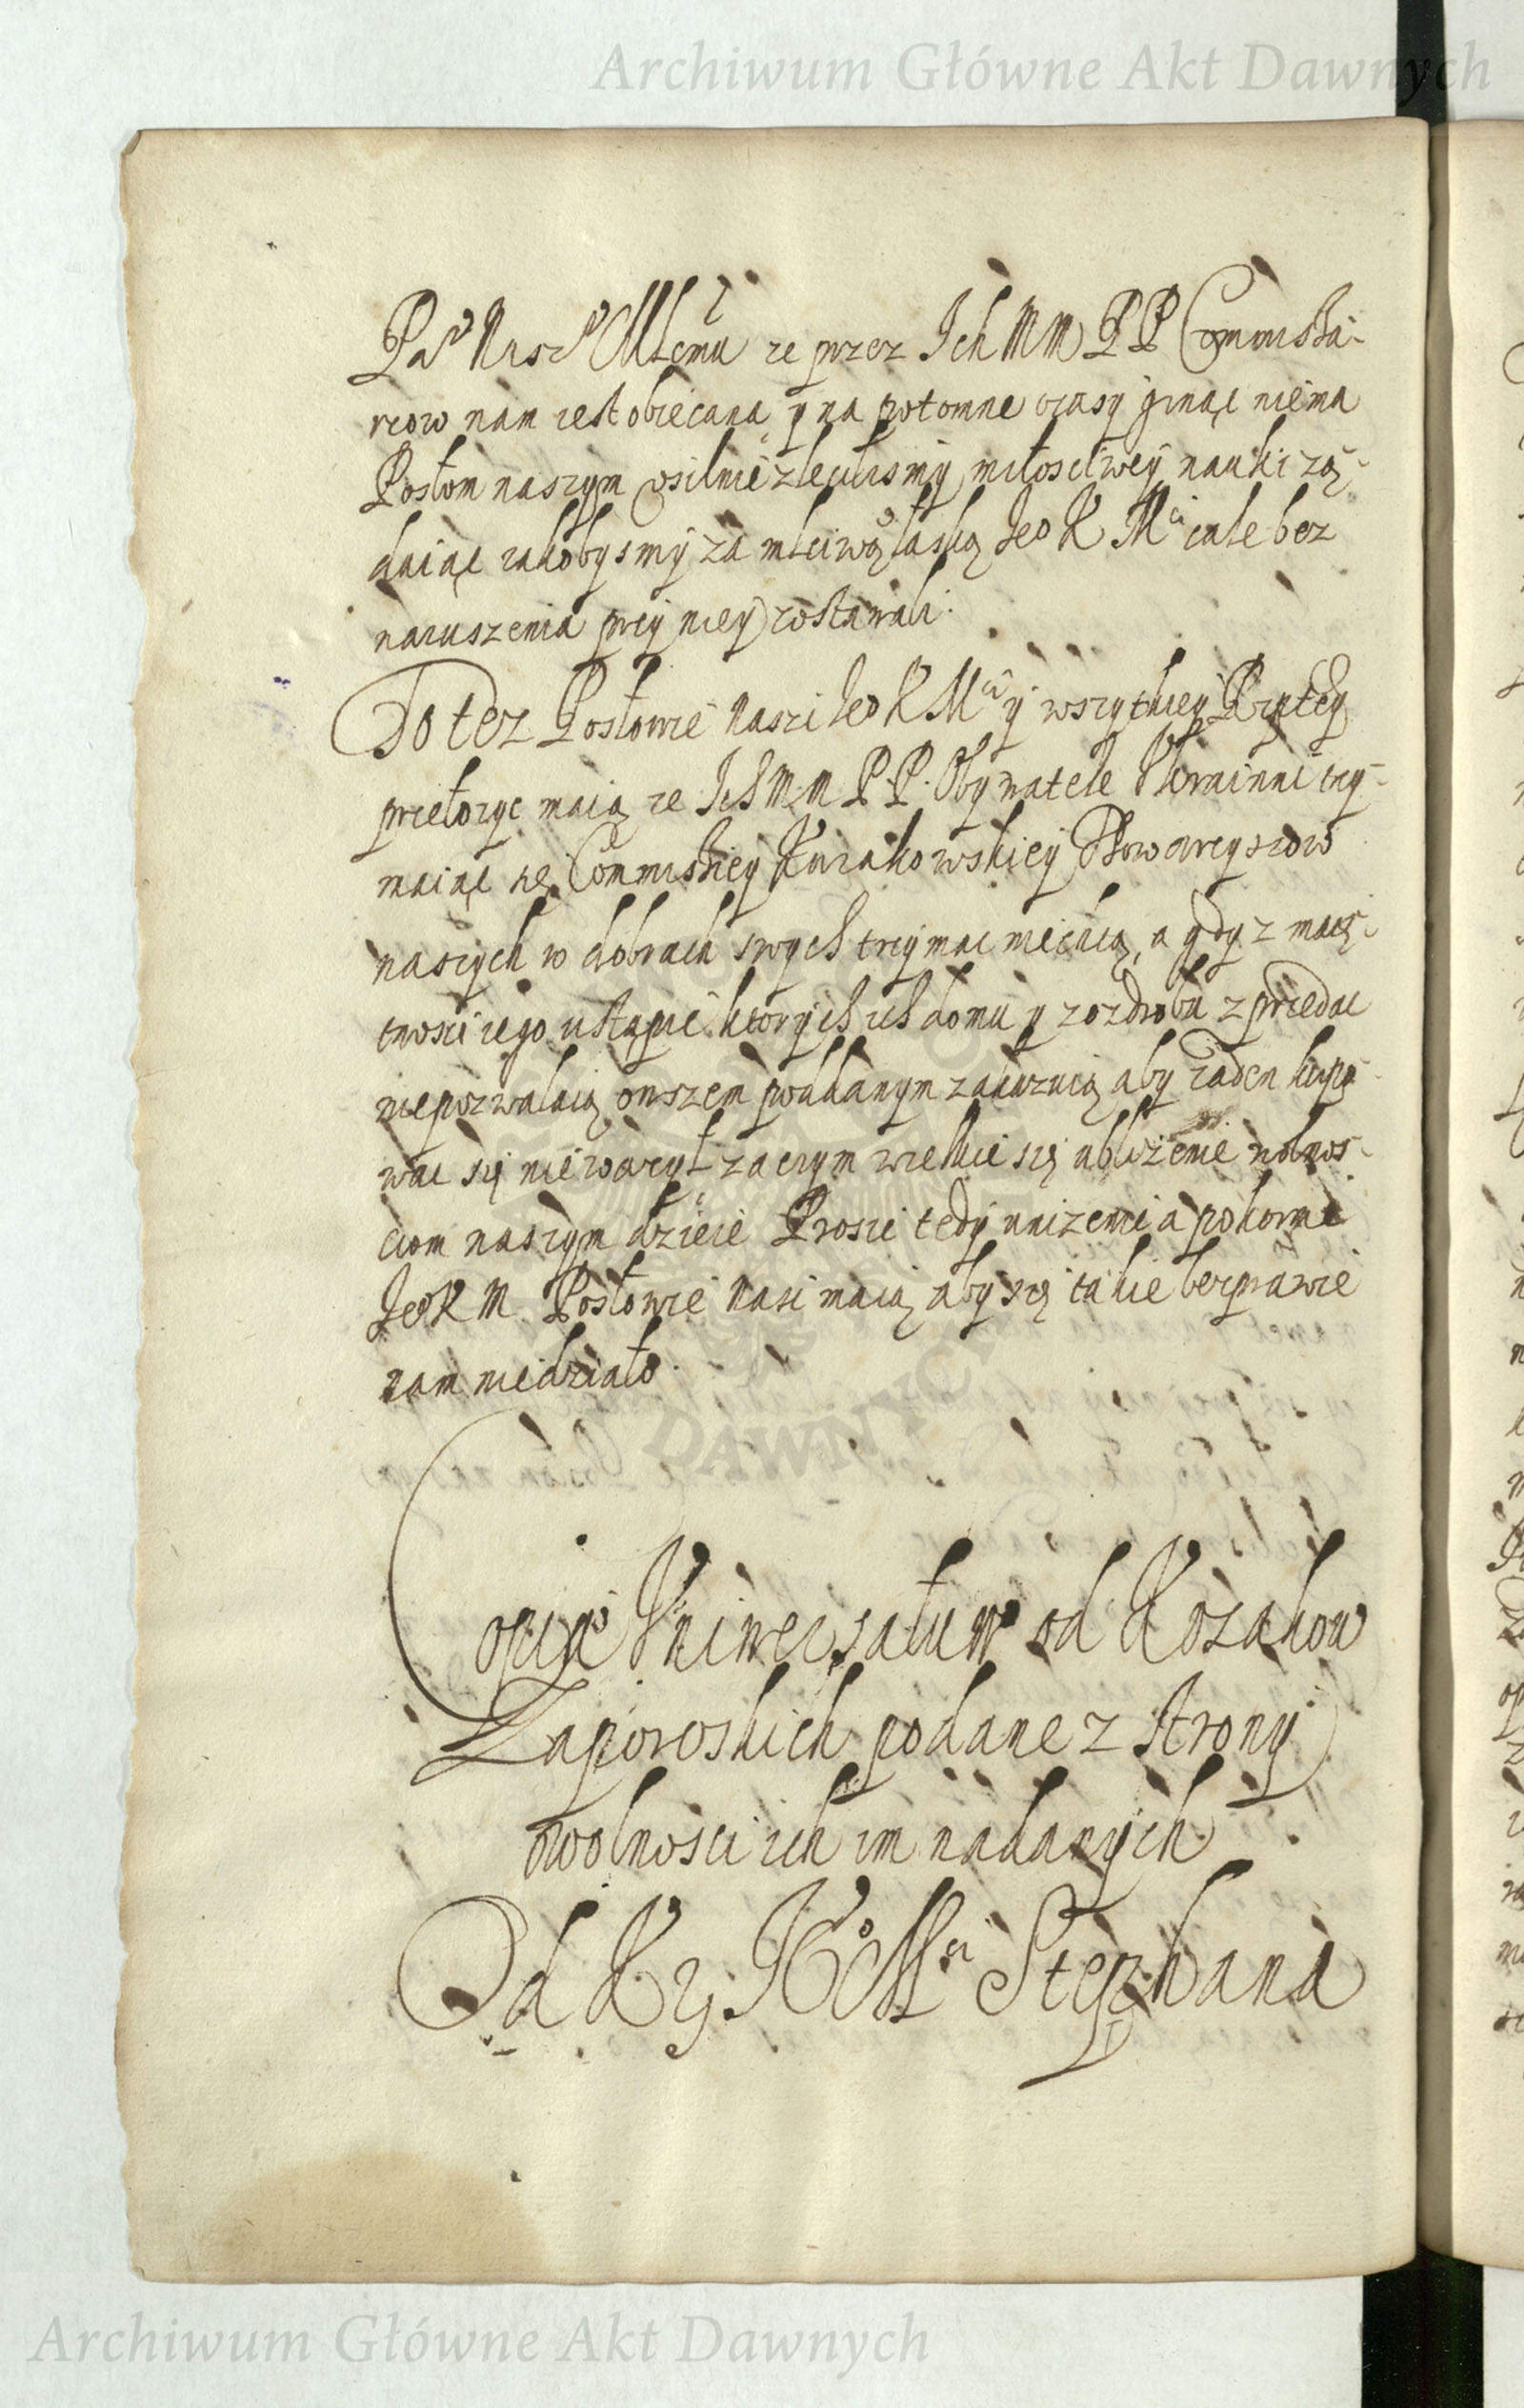 Archiwum Główne Akt Dawnych
Pa Nasz Młemu ze przez Ich MM PP Commissa-
rzow nam iest obiecana y na potomne czasy ginąc niema
Posłom naszym usilnie zleciliśmy miłosciwey nauki zą-
daiąc iakobysmy za młciwą łaską Jeo K Mci cale bez
naruszenia przy niey zostawali.
To tez Posłowie Naszi Jeo K Mci y wszytkiey Rzptey
przełozyc maią ze Ich MM P.P. Obywatele Ukrainni trzy-
maiąc się Commissiey Kurakowskiey Towarzyszow
naszych w dobrach swych trzymac niechcą, a gdy z maię-
tnosci iego ustąpic których ich domu y zozdroba z przedac
niepozwalaią owszem poddanym zakazuią aby zaden kupo-
wac się niewazył zaczym wielkie się ubliżenie wolnos-
ciom naszym dzieie Prosic tedy unizenie a pokornie
Jeo K M Posłowie Nasi maią aby się takie bezprawie
nam niedziało.
Copije Uniwersałuw od Kozakow
Zaporoskich podane z strony
wolnosci ich im nadanych
Od Kr J Kro Mci Stephana
DAWNYCH
Archiwum Główne Akt Dawnych